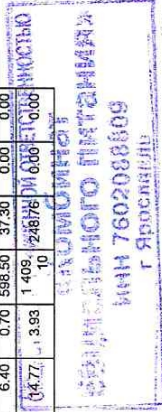 6.40 0.70 598.50 37.30 0.00 0.00
14.77 3.93 1 409.10 248.76 0.00 0.00
ОТВЕТСТВЕННОСТЬЮ
«Комбинат
питания»
ИНН 7602088809
г Ярославль